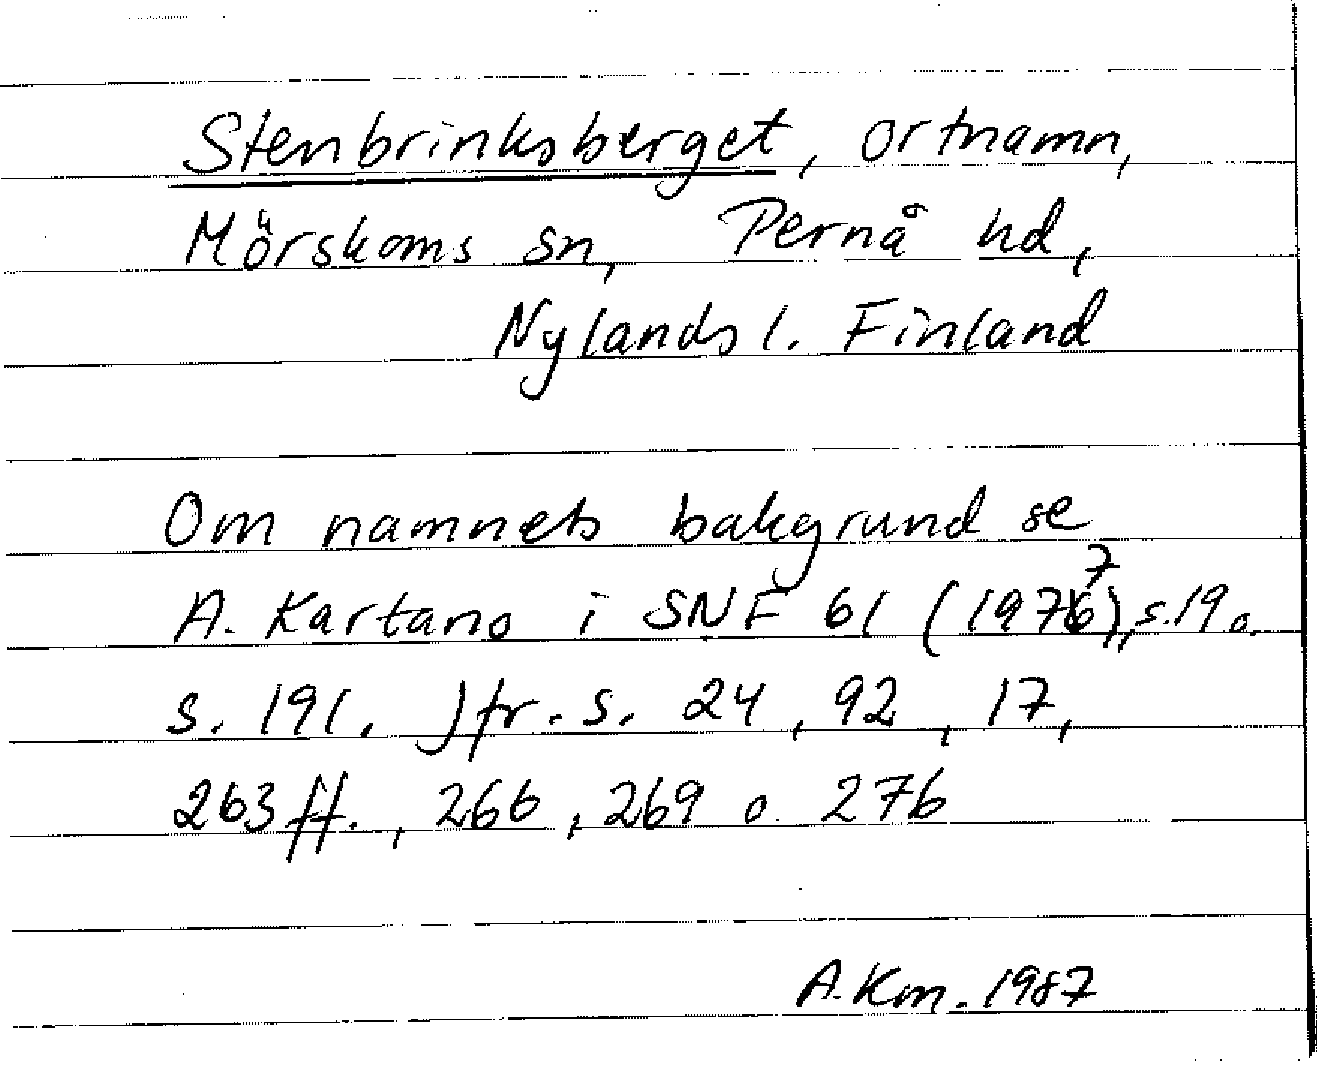 Stenbrinksberget, ortnamn,
Mörskoms sn, Pernå hd,
Nylands l. Finland
Om namnets bakgrund se
A. Kartano i SNF 61 (1977), s.19 o.
s. 191. Jfr. s. 24, 92, 17,
263 ff., 266, 269 o. 276
A. Km. 1987